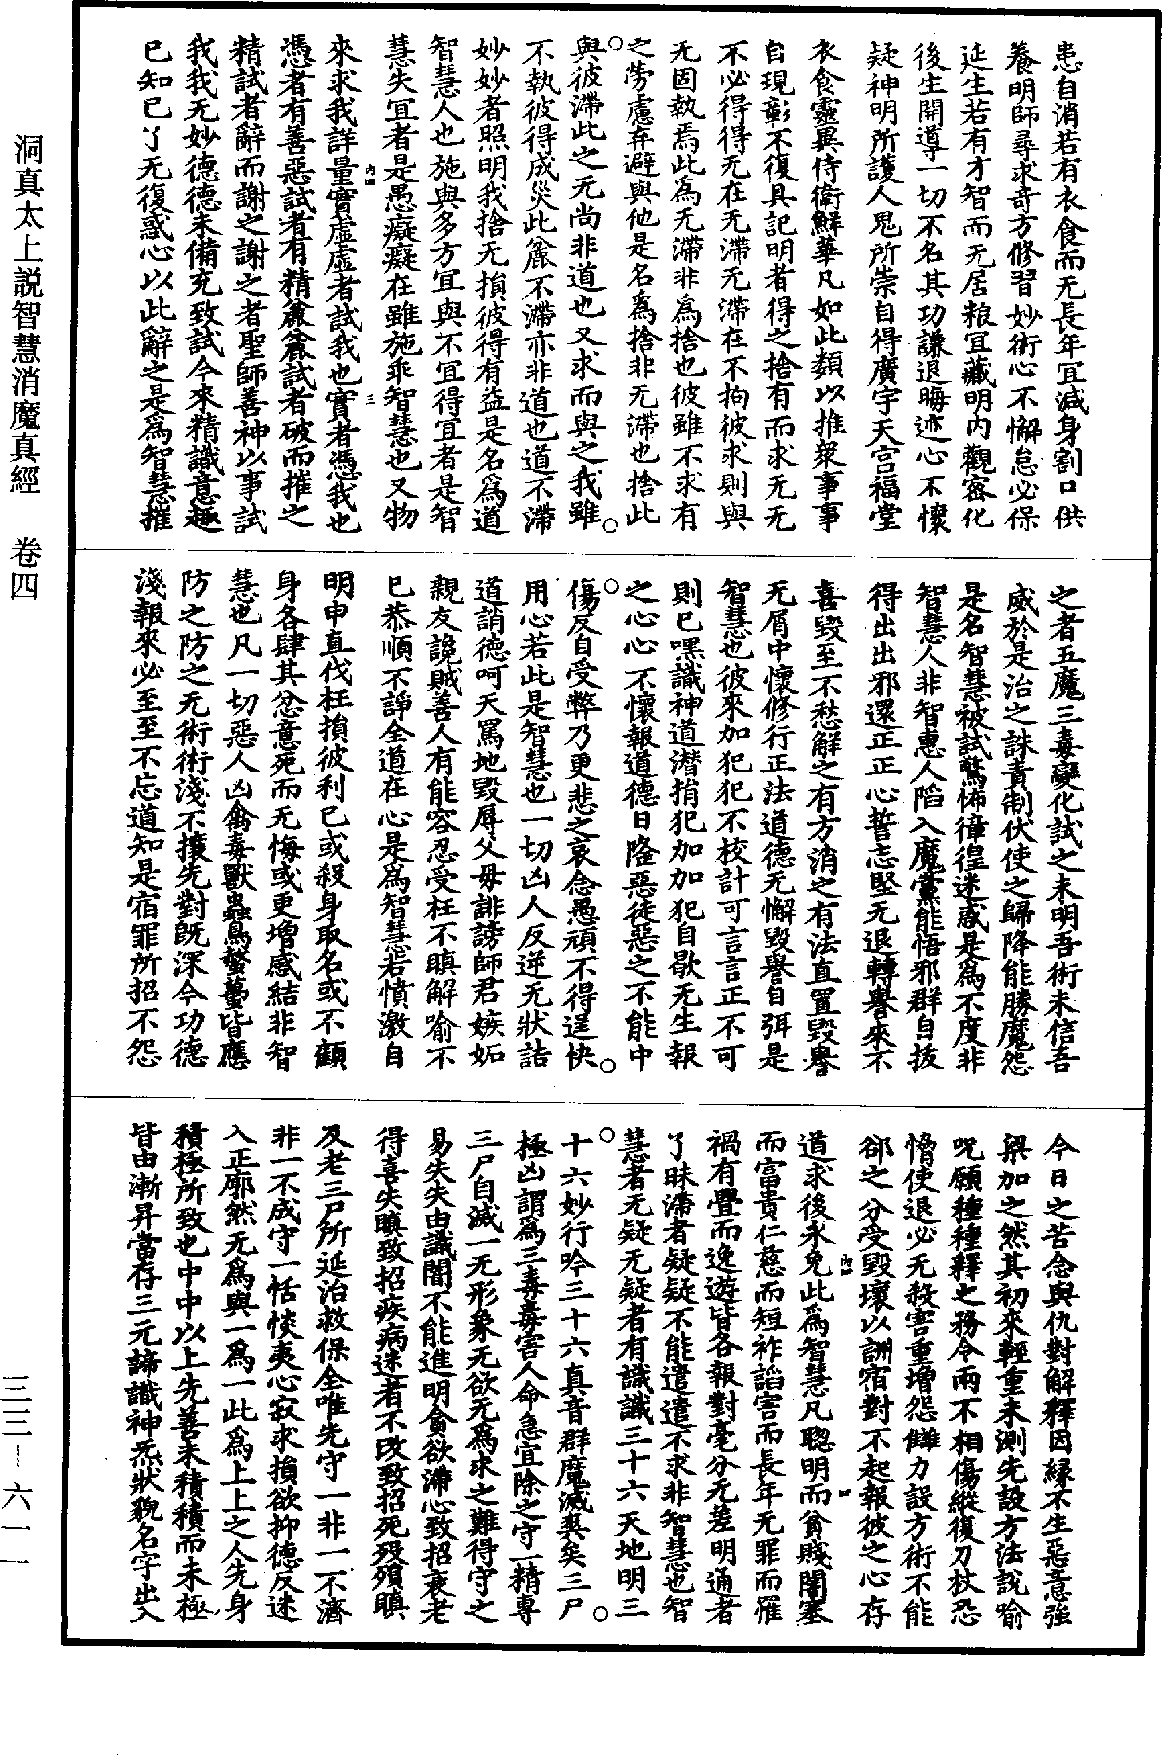 患自消若有衣食而无長年宜減身割口供
養明師尋求奇方修習妙術心不懈怠必保
延生若有才智而无居粮宜藏明内觀密化
後生開導一切不名其功謙退晦迹心不懷
疑神明所護人鬼所崇自得廣宇天宫福堂
衣食靈異侍衛鮮華凡如此類以推衆事事
自現彰不復具記明者得之捨有而求无无
不必得得无在无滯无滯在不拘彼求則與
无固執焉此為无滯非為捨也彼雖不求有
之勞慮弃避與他是名為捨非无滯也捨此
與彼滯此之无尚非道也又求而與之我雖
不執彼得成災此麄不滯亦非道也道不滯
妙妙者照明我捨无損彼得有益是名為道
智慧人也施與多方宜與不宜得宜者是智
慧失宜者是愚癡癡在雖施乖智慧也又物
來求我詳量實虛虛者試我也實者憑我也
憑者有善惡試者有精麄麄試者破而摧之
精試者辭而謝之謝之者聖師善神以事試
我我无妙德德未備充致試今來精識意極
已知已了无復惑心以此辭之是為智慧摧
之者五魔三毒變化試之未明吾術未信吾
威於是治之誅責制伏使之歸降能勝魔怨
是名智慧被試驚怖徨徨迷惑是為不度非
智慧人非智惠人陷入魔黨能悟邪群自拔
得出出邪還正正心誓志堅无退轉譽來不
喜毀至不愁解之有方消之有法直置毀譽
无屑中懷修行正法道德无懈毀譽自弭是
智慧也彼來加犯犯不校計可言言正不可
則已嘿識神道潛揹犯加加犯自歇无生報
之心心不懷報道德日隆惡徒惡之不能中
傷反自受弊乃更悲之哀念愚頑不得逞快
用心若此是智慧也一切凶人反逆无狀詰
道誚德呵天罵地毀辱父母誹謗師君嫉妬
親友讒賊善人有能容忍受枉不瞋解喻不
已恭順不諍全道在心是為智慧若憤激自
明申直伐枉損彼利已或殺身取名或不顧
身各肆其忿意死而无悔或更增惑結非智
慧也凡一切惡人凶禽毒獸蟲鳥螫蠆皆應
防之防之无術術淺不攘先對既深今功德
淺報來必至至不忘道知是宿罪所招不怨
今日之苦念與仇對解釋因縁不生惡意強
梁加之然其初來輕重未測先設方法說喻
呪願種種釋之務令兩不相傷縱復刀杖恐
懀使退必无殺害重增怨讎力設方術不能
郤之分受毀壞以詶宿對不起報彼之心存
道求後永免此為智慧凡聰明而貧賤闇塞
而富貴仁慈而短祚諂害而長年无罪而罹
禍有舋而逸遊皆各報對毫分无差明通者
了昧滯者疑疑不能遣遣不求非智慧也智
慧者无疑无疑者有識識三十六天地明三
十六妙行吟三十六真音群魔滅矣矣三尸
極凶謂為三毒毒害人命急宜除之守一精專
三尸自滅一无形象无欲无為求之難得守之
易失失由識闇不能進明貪欲滯心致招衰老
得喜失瞋致招疾病迷者不改致招死歿殞瞋
及老三尸所延治救保全唯先守一非一不濟
非一不成守一恬惔夷心寂求損欲抑德反迷
入正廓然无為與一為一此為上上之人先身
積極所致也中中以上先善未積積而未極
皆由漸昇當存三元諦識神炁狀貌名字出入
洞真太上説智慧消魔真經　卷四
三三—六一一